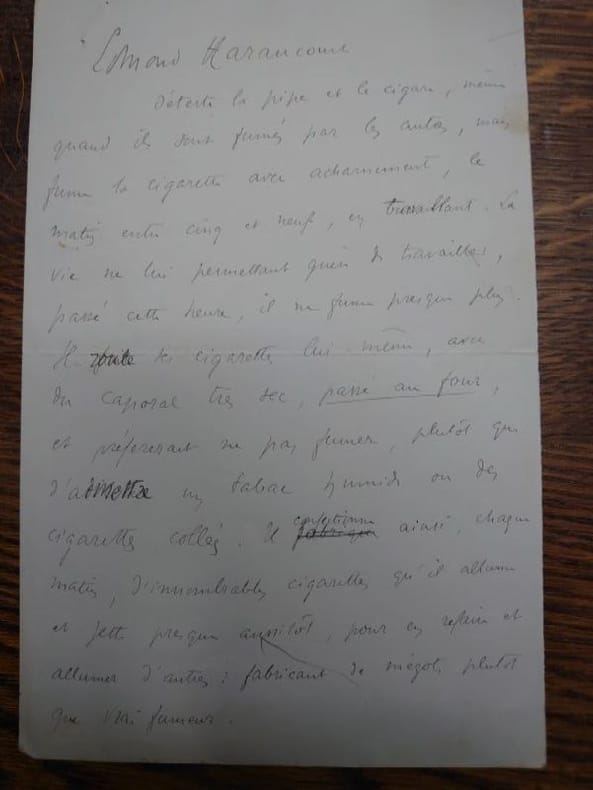 Edmond Haraucourt
Déteste la pipe et le cigare, même
quand ils sont fumés par les autres, mais
fume la cigarette avec acharnement, le
matin entre cinq et neuf, en travaillant. La
vie ne lui permettant guère de travailler,
passé cette heure, il ne fume presque plus.
Il roule ses cigarettes lui-même, avec
du caporal très sec, passé au four,
et préférerait ne pas fumer, plutôt que
d'admettre un tabac humide ou des
cigarettes collées. Il confectionne ainsi, chaque
matin, d'innombrables cigarettes qu'il allume
et jette presque aussitôt, pour en refaire et
allumer d'autres : fabricant de mégots plutôt
que vrai fumeur.